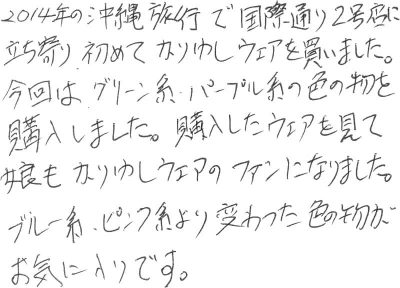 2014年の沖縄旅行で国際通り2号店に
立ち寄り初めてかりゆしウェアを買いました。
今回はグリーン系・パープル系の色の物を
購入しました。購入したウェアを見て
娘もかりゆしウェアのファンになりました。
ブルー系、ピンク系より変わった色の物が
お気に入りです。